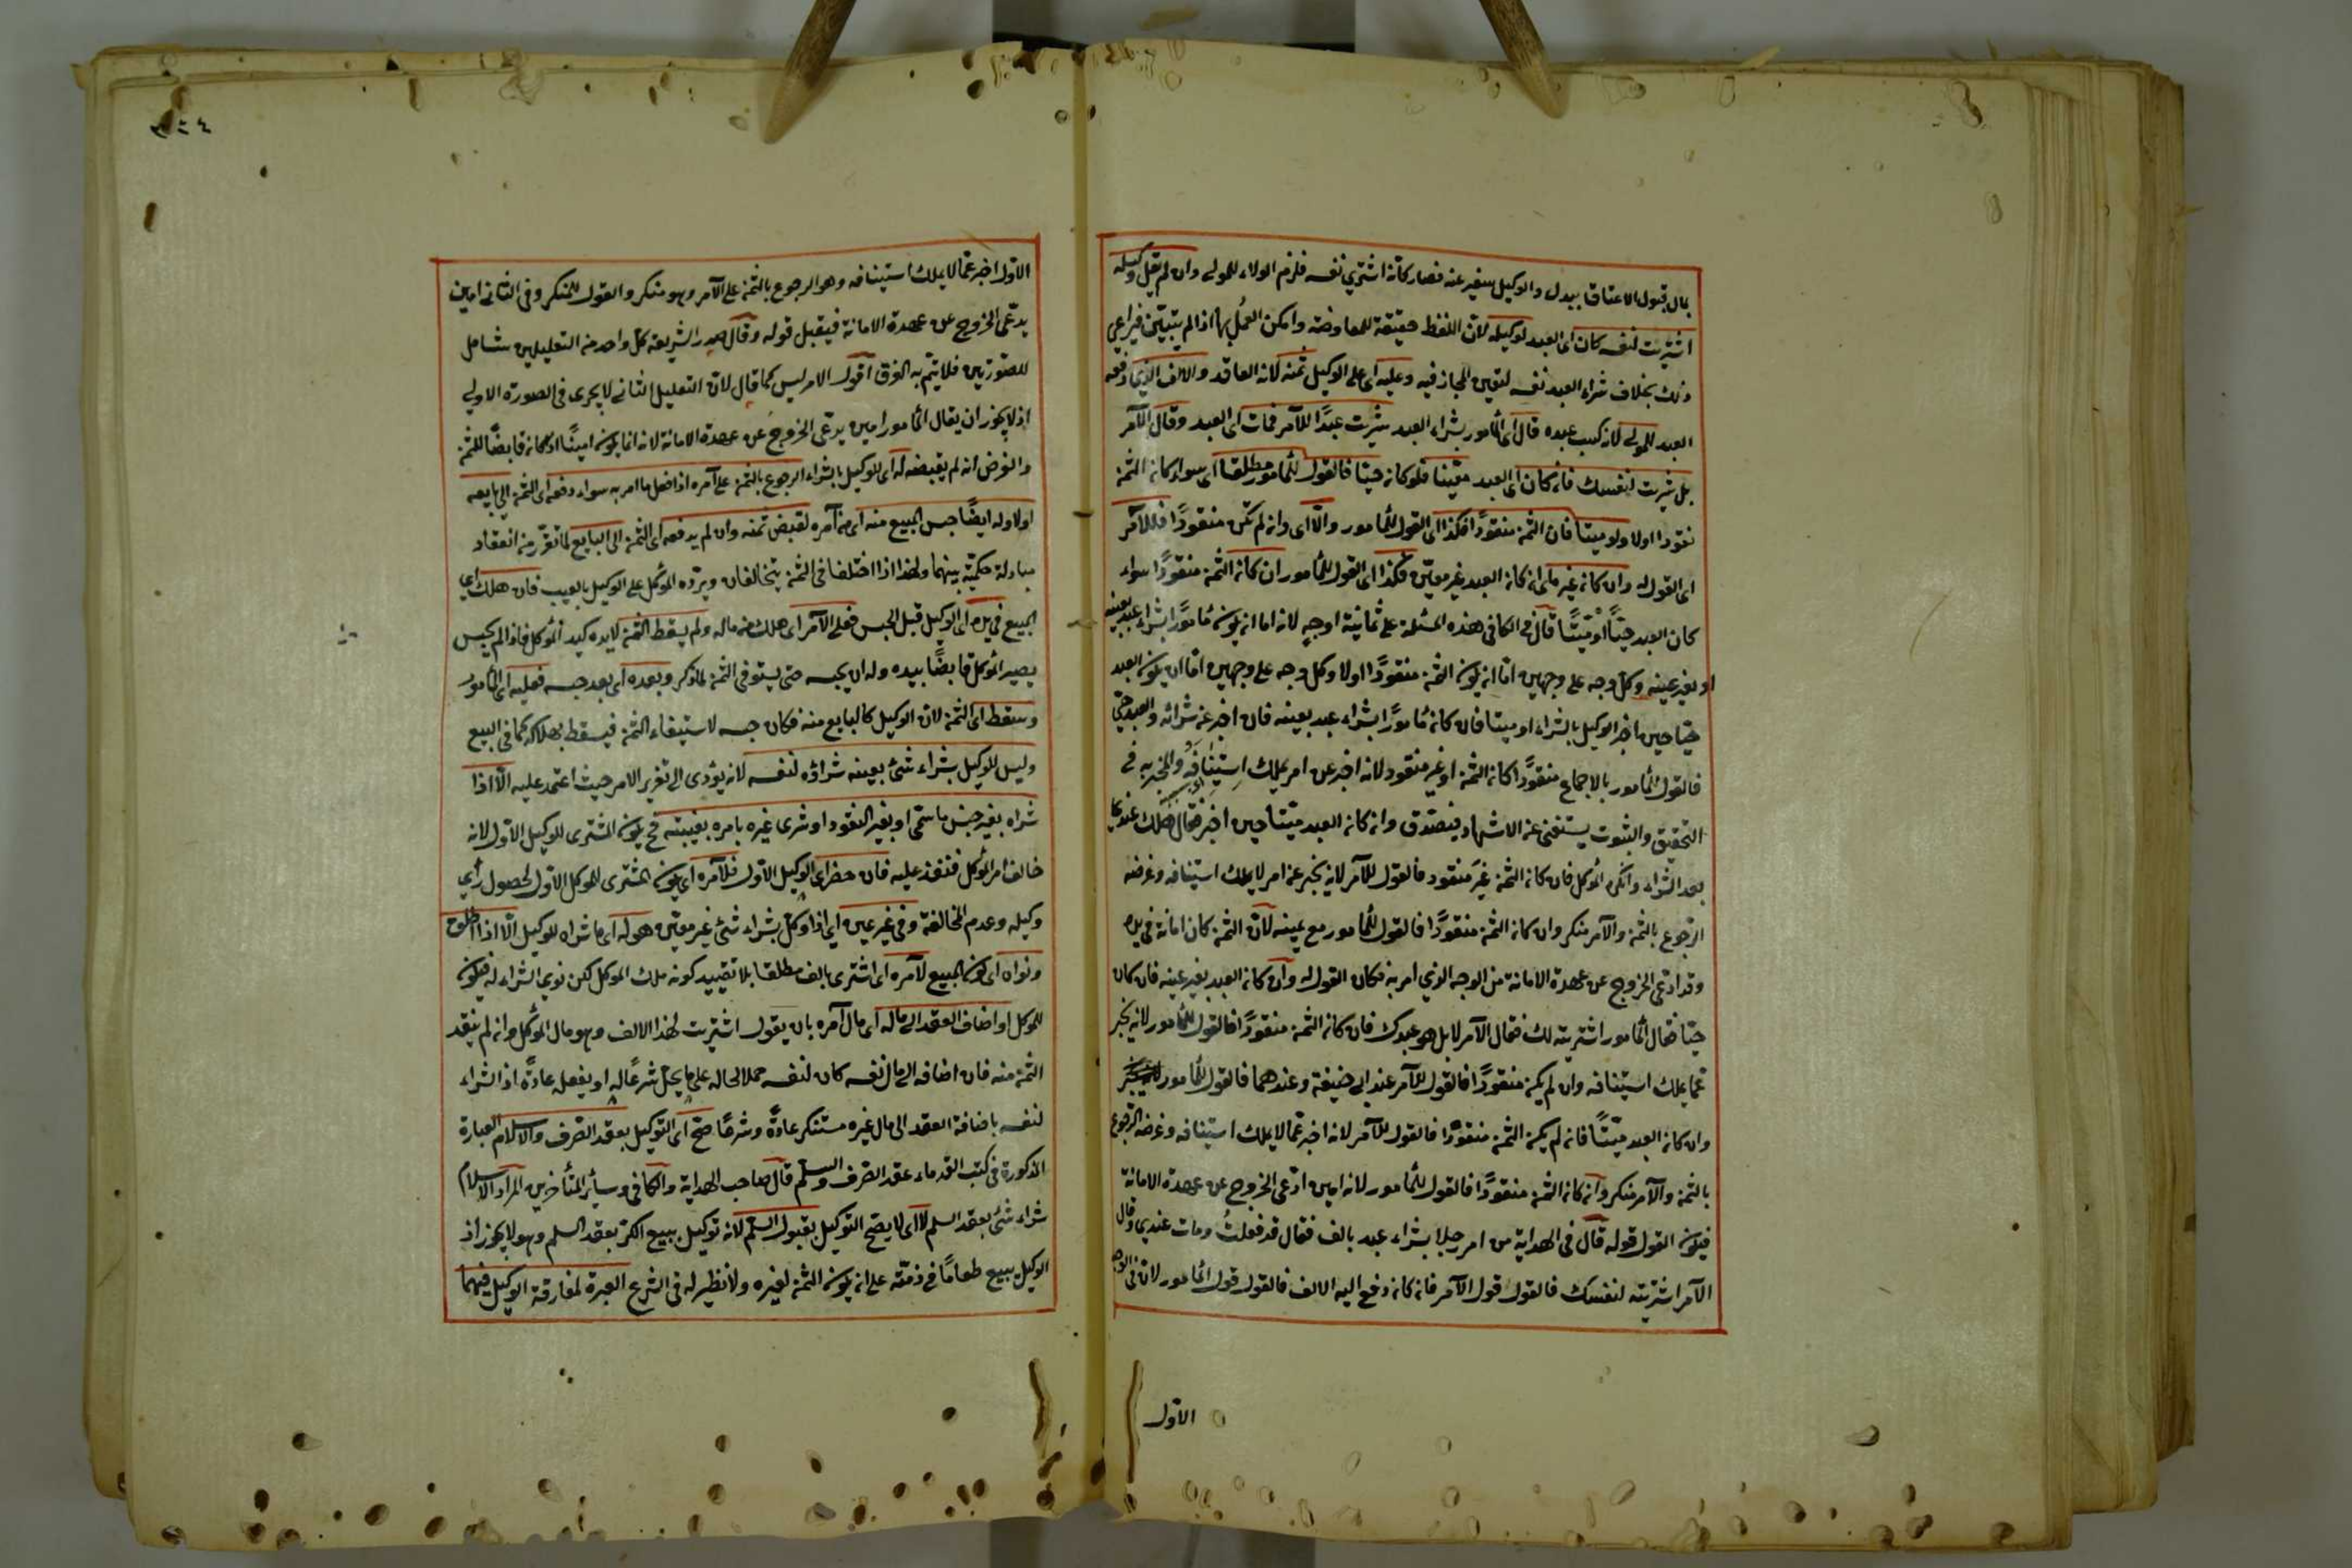 بمال قبول الاعتاق ببدل والوكيل سفير عنه فصار كأنه اشترى نفسه فلزم الولاء للمولى وان لم يقل وكيله
اشتريت لنفسه كان اى العبد لوكيله لان اللفظ حقيقة للمعاوضة وامكن العمل بها اذا لم يتبين فيراعى
ذلك بخلاف شراء العبد نفسه لتعين المجاز فيه وعليه اى على الوكيل ثمنه لانه العاقد والالف الذى دفعه
العبد للمولى لانه كسب عبده قال اى المأمور بشراء العبد شريت عبدًا للآمر فمات اى العبد وقال الآمر
بل شريت لنفسك فان كان اى العبد معينا فلو كانه حيًا فالقول للمأمور مطلقا اى سواء كانه الثمن
نقودا اولا ولو ميتا فان الثمن منقودًا فكذا اى القول للمأمور والّا اى وانه لم يكن منقودًا فللآمر
اى القول له وان كانه غيره اى انه كانه العبد غير معين فكذا اى القول للمأمور ان كانه الثمن منقودًا سواء
كان العبد حيًّا او ميّتًا قال فى الكافى هذه المسئلة على ثمانية اوجه لانه اما انه يكون مأمورًا بشراء عبد بعينه
او بغير عينه وكل وجه على وجهين امّا انه يكون الثمن منقودًا اولا وكل وجه على وجهين امّا ان يكون العبد
حيّا حين اخبر الوكيل بالشراء او ميتا فان كانه مأمورًا بشراء عبد بعينه فان اخبر عن شرائه والعبد حىّ
فالقول للمأمور بالاجماع منقودًا كانه الثمن او غير منقود لانه اخبر عن امر يملك استينافه والمخبر به فى
التحقيق والثبوت يستغنى عن الاشهاد فيصدق وانه كانه العبد ميّتا حين اخبر فقال هلك عندى
بعد الشراء وانكره الموكل فان كانه الثمن غير منقود فالقول للآمر لانه يخبر عن امر لا يملك استينافه وغرضه
الرجوع بالثمن والآمر منكر وان كانه الثمن منقودًا فالقول للمأمور مع يمينه لان الثمن كان امانة فى يده
وقد ادعى الخروج عن عهدة الامانة من الوجه الذى امر به فكان القول له وان كانه العبد بغير عينه فان كان
حيّا فقال المأمور اشتريته لك فقال الآمر لا بل هو عبدك فان كانه الثمن منقودًا فالقول للمأمور لانه يخبر
عما يملك استينافه وان لم يكن منقودًا فالقول للآمر عند ابى حنيفة وعندهما فالقول للمأمور
وان كانه العبد ميّتًا فانه لم يكن الثمن منقودًا فالقول للآمر لانه اخبر عما لا يملك استينافه وغرضه الرجوع
بالثمن والآمر منكر وانه كانه الثمن منقودًا فالقول للمأمور لانه امين ادعى الخروج عن عهدة الامانة
فيكون القول قوله قال فى الهداية من امر رجلا بشراء عبد بالف فقال قد فعلتُ ومات عندى وقال
الآمر اشتريته لنفسك فالقول قول الآمر فانه كانه دفع اليه الالف فالقول قول المأمور لان فى الوجه
الاول
٣٢٤
الاول اخبر عمّا لا يملك استينافه وهو الرجوع بالثمن على الآمر وهو منكر والقول للمنكر وفى الثانى امين
يدعى الخروج عن عهدة الامانة فيقبل قوله وقال صدر الشريعة كل واحد من التعليلين شامل
للصورتين فلا يتم به الفرق اقول الامر ليس كما قال لان التعليل الثانى لا يجرى فى الصورة الاولى
اذ لا يجوز ان يقال المأمور امين يدعى الخروج عن عهدة الامانة لانه انما يكون امينًا اذا كانه قابضًا للثمن
والغرض انه لم يقبضه له اى للوكيل بالشراء الرجوع بالثمن على آمره اذا فعل ما امر به سواء دفعه اى الثمن الى بايعه
اولا وله ايضًا حبس المبيع منه اى من آمره لقبض ثمنه وان لم يدفعه اى الثمن الى البايع لما تقرر من انعقاد
مبادلة حكميّة بينهما ولهذا اذا اختلفا فى الثمن يتخالفان ويردّه الموكل على الوكيل بالعيب فان هلك اى
المبيع فى يده اى الوكيل قبل الحبس فعلى الآمر اى هلك من ماله ولم يسقط الثمن لان يده كيد الموكل فاذا لم يحبس
يصير الموكل قابضًا بيده وله ان يحبسه حتى يستوفى الثمن لما ذكر وبعده اى بعد حبسه فعليه اى المأمور
وسقط اى الثمن لان الوكيل كالبايع منه فكان حبسه لاستيفاء الثمن فيسقط بهلاكه كما فى البيع
وليس للوكيل بشراء شئ بعينه شراؤه لنفسه لانه يؤدى الى تغرير الامر حيث اعتمد عليه الّا اذا
شراه بغير جنس ما سمّى او بغير النقود او شرى غيره بامره بغيبته فح يكون المشترى للوكيل الاول لانه
خالف امر الموكل فنفذ عليه فان حضر اى الوكيل الاول فلآمره اى يكون المشترى للموكل الاول لحصول رأى
وكيله وعدم المخالفة وفى غير عين اى اذا وكل بشراء شئ غير معين هو له اى ما شراه للوكيل الّا اذا اطلق
ونواه اى كون المبيع لآمره اى اشترى بالف مطلقا بلا تقييد كونه ملك الموكل لكن نوى الشراء له فيكون
للموكل او اضاف العقد الى ماله اى مال آمره بان يقول اشتريت لهذا الالف وهو مال الموكل وانه لم ينقد
الثمن منه فان اضافه الى مال نفسه كان لنفسه حملا لحاله على ما يحل شرعًا له او يفعل عادةً اذ الشراء
لنفسه باضافة العقد الى مال غيره مستنكر عادةً وشرعًا صح اى التوكيل بعقد الصرف والاسلام العبارة
المذكورة فى كتب القدماء عقد الصرف والسلم قال صاحب الهداية والكافى وسائر المتأخرين المراد الاسلام
شراء شئ بعقد السلم لا اى لا يصح التوكيل بقبول السلم لانه توكيل ببيع الكرّ بعقد السلم وهو لا يجوز اذ
الوكيل يبيع طعامًا فى ذمّته على انه يكون الثمن لغيره ولا نظير له فى الشرع العبرة لمفارقة الوكيل فيهما